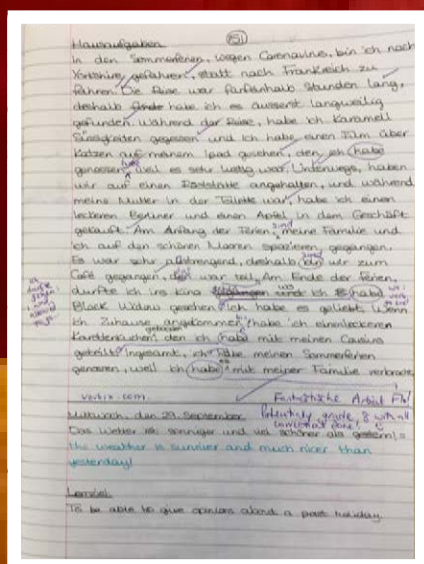 Hausaufgaben
In den Sommerferien, wegen Coronavirus, bin ich nach
Yorkshire gefahren, statt nach Frankreich zu
fahren. Die Reise war Stunden lang,
deshalb habe ich es äusserst langweilig
gefunden. Während der Reise, habe ich Karamell
Süssigkeiten gegessen und ich habe einen Film über
Katzen auf meinem Ipad gesehen, den ich habe
genossen weil es sehr lustig war. Unterwegs, haben
wir auf einen angehalten, und während
meine Mutter in der Toilette war, habe ich einen
leckeren Berliner und einen Apfel in dem Geschäft
gekauft. Am Anfang der Ferien, meine Familie und
ich auf den schönen Mooren spazieren gegangen.
Es war sehr anstrengend, deshalb wir zum
Café gegangen, war toll. Am Ende der Ferien,
durfte ich ins Kino ich habe
Black Widow gesehen. Ich habe es geliebt. Wenn
ich Zuhause angekommen, habe ich einen leckeren
Karottenkuchen, den ich habe mit meinen Cousins
geteilt. Insgesamt, ich habe meinen Sommerferien
genossen, weil ich habe mit meiner Familie verbracht.
verbix.com.
Fantastische Arbeit
Potentially grade 8 with all
corrections done!
Mittwoch, den 29. September
Das Wetter ist sonniger und viel schöner als gestern! =
the weather is sunnier and much nicer than
yesterday!
Lernziel
To be able to give opinions about a past holiday